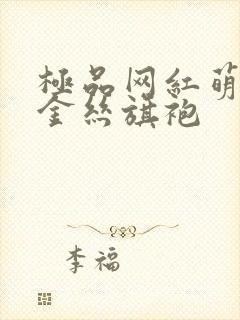 極品网紅萌
金丝旗袍
李福